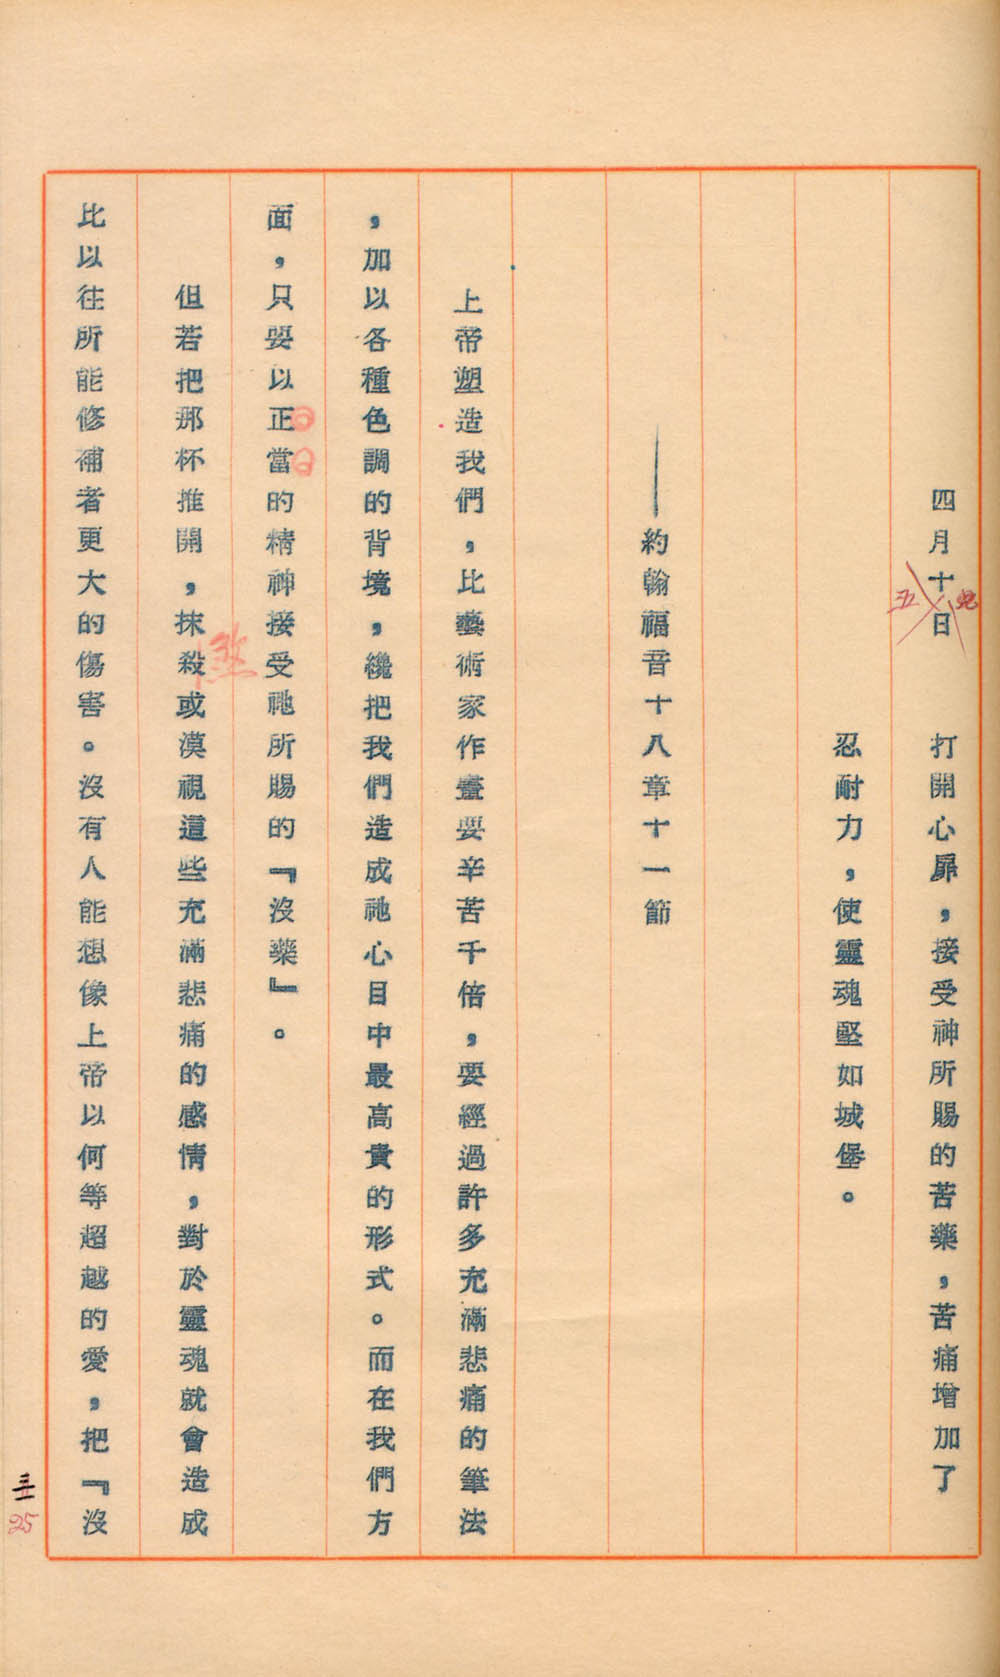 四月十日　打開心扉，接受神所賜的苦藥，苦痛增加了
忍耐力，使靈魂堅如城堡。
——約翰福音十八章十一節
上帝塑造我們，比藝術家作畫要辛苦千倍，要經過許多充滿悲痛的筆法
，加以各種色調的背境，纔把我們造成祂心目中最高貴的形式。而在我們方
面，只要以正當的精神接受祂所賜的『沒藥』。
但若把那杯推開，抹殺或漠視這些充滿悲痛的感情，對於靈魂就會造成
煞
比以往所能修補者更大的傷害。沒有人能想像上帝以何等超越的愛，把『沒
25